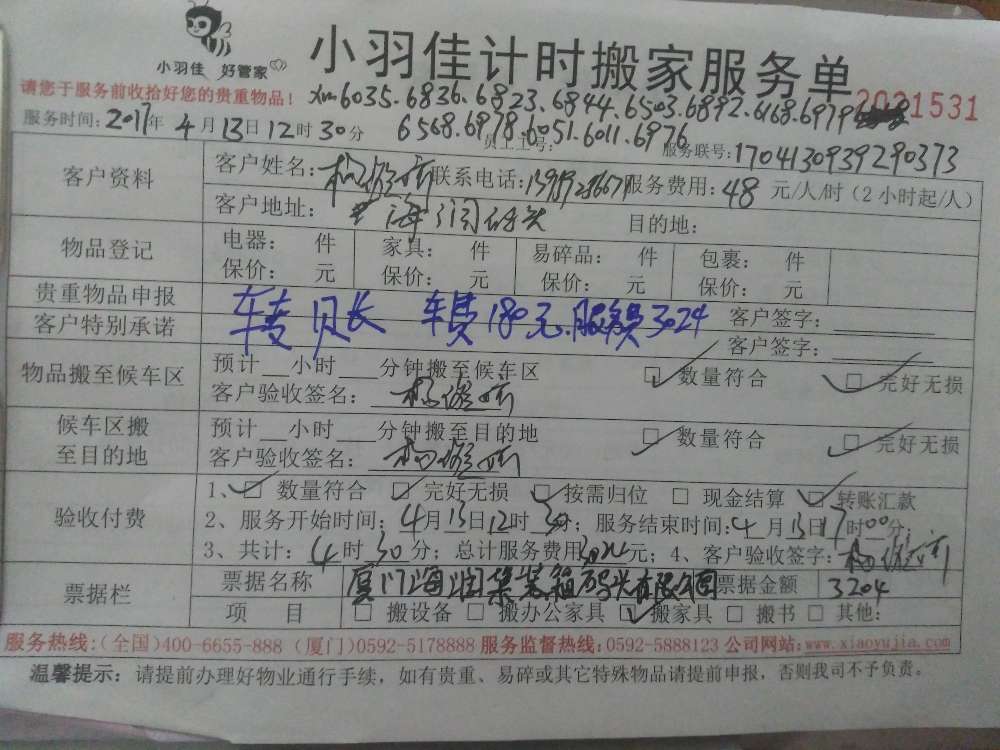 小羽佳 好管家
小羽佳计时搬家服务单
请您于服务前收拾好您的贵重物品！ xm6035.6836.6823.6844.6503.6892.6168.6979 2021531
服务时间：2017年4月13日12时30分 6568.6978.6051.6011.6976 员工工号： 服务联号：1704130939290373
客户资料 客户姓名： 联系电话： 服务费用：48 元/人/时（2小时起/人）
客户地址： 海润码头 目的地：
物品登记 电器： 件 家具： 件 易碎品： 件 包裹： 件
保价： 元 保价： 元 保价： 元 保价： 元
贵重物品申报 客户签字：
车费180元.服务费3024
客户特别承诺 客户签字：
物品搬至候车区 预计__小时___分钟搬至候车区 □ 数量符合 □ 完好无损
客户验收签名：
候车区搬至目的地 预计__小时___分钟搬至目的地 □ 数量符合 □ 完好无损
客户验收签名：
验收付费 1、□ 数量符合 □ 完好无损 □ 按需归位 □ 现金结算 □ 转账汇款
2、服务开始时间：4月13日12时30分；服务结束时间：4月13日17时00分；
3、共计：4时30分；总计服务费用3024元；4、客户验收签字：
票据栏 票据名称 厦门海润集装箱码头有限公司 票据金额 3204
项 目 □ 搬设备 □ 搬办公家具 □ 搬家具 □ 搬书 □ 其他：
服务热线：(全国)400-6655-888 (厦门)0592-5178888 服务监督热线：0592-5888123 公司网站：www.xiaoyujia.com
温馨提示：请提前办理好物业通行手续，如有贵重、易碎或其它特殊物品请提前申报，否则我司不予负责。